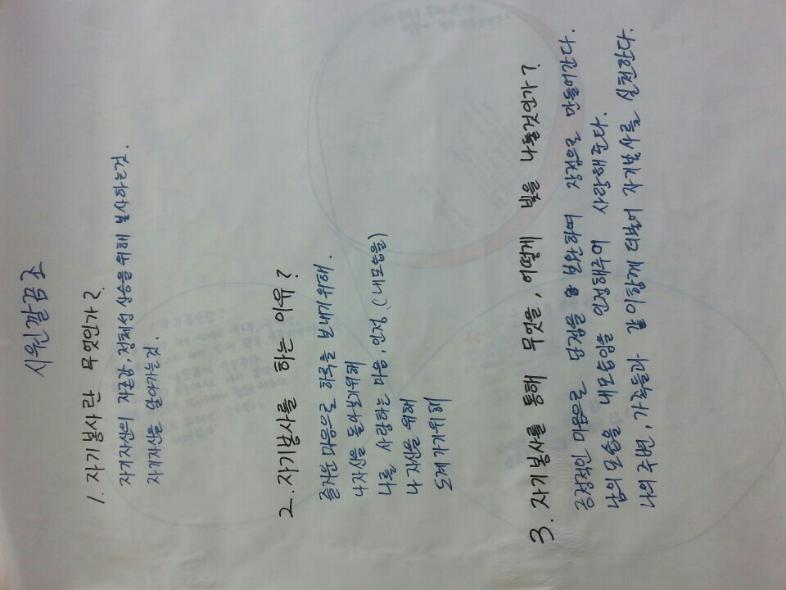 시원깔끔조
1. 자기봉사란 무엇인가?
자기자신의 자존감, 정체성 상승을 위해 봉사하는것.
자기자신을 알아가는것.
2. 자기봉사를 하는 이유?
즐거운 마음으로 하루를 보내기 위해.
나 자신을 돌아보기위해
나를 사랑하는 마음, 인정 (내모습을)
나 자신을 위해
도레가기위해
3. 자기봉사를 통해 무엇을, 어떻게 빛을 나눌것인가?
긍정적인 마음으로 단점을 보완하여 장점으로 만들어간다.
남의 모습을 내모습임을 인정해주며 사랑해준다.
나의 주변, 가족들과 같이함께 더불어 자기봉사를 실천한다.